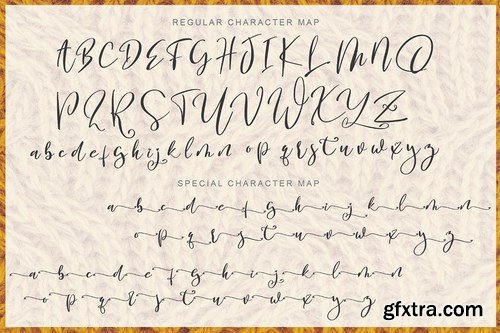 REGULAR CHARACTER MAP
A B C D E F G H I J K L M N O
P Q R S T U V W X Y Z
a b c d e f g h i j k l m n o p q r s t u v w x y z
SPECIAL CHARACTER MAP
a b c d e f g h i j k l m n
o p q r s t u v w x y z
a b c d e f g h i j k l m n
o p q r s t u v w x y z
gfxtra.com